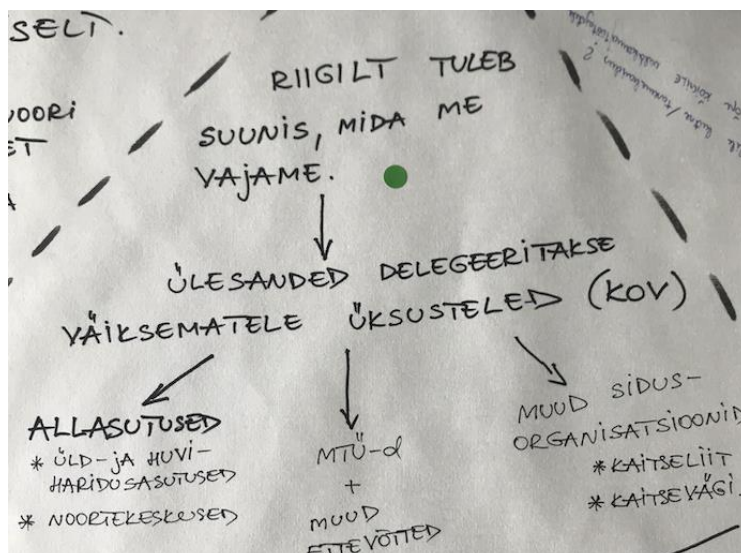 SELT.
RIIGILT TULEB
SUUNIS, MIDA ME
VAJAME.
ÜLESANDED DELEGEERITAKSE
VÄIKSEMATELE ÜKSUSTELED (KOV)
ALLASUTUSED
* ÜLD-JA HUVI-
HARIDUSASUTUSED
* NOORTEKESKUSED
MTÜ-d
+
MUUD
ETTEVÕTTED
MUUD SIDUS-
ORGANISATSIOONID
* KAITSELIIT
* KAITSEVÄGI.